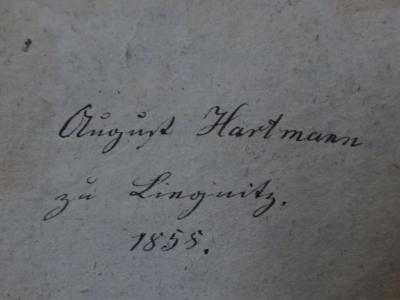 August Hartmann
zu Liegnitz.
1855.